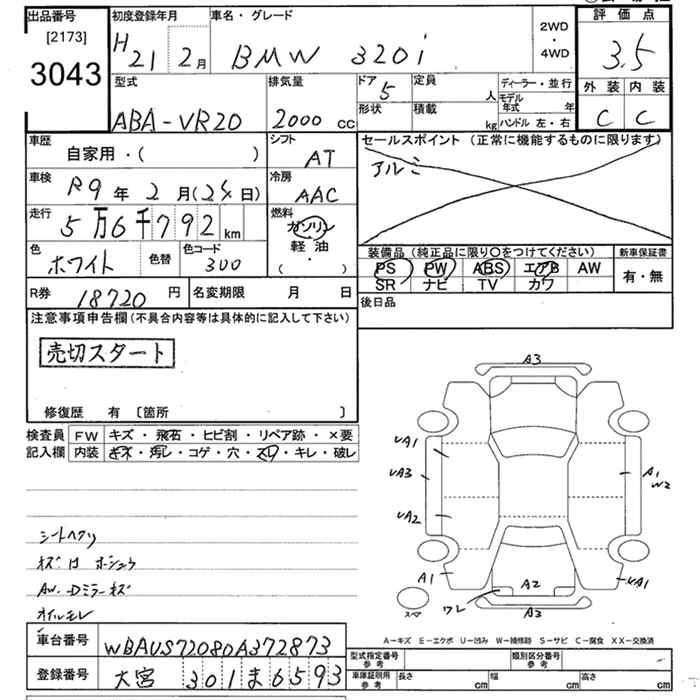 出品番号
[2173]
3043
初度登録年月
H21 2月
車名・グレード
BMW 320i
2WD
・
4WD
評価点
3.5
外装 内装
C C
型式
ABA-VR20
排気量
2000 cc
ドア
5
形状
定員
人
積載
kg
ディーラー・並行
モデル年式 年
ハンドル 左・右
車歴
自家用・( )
シフト
AT
セールスポイント (正常に機能するものに限ります)
アルミ
車検
R9年 2月(24日)
冷房
AAC
走行
5万6千792km
燃料
ガソリン
軽油
(・)
色
ホワイト
色替
色コード
300
装備品 (純正品に限り○をつけてください)
PS PW ABS エアB AW
SR ナビ TV カワ
新車保証書
有・無
R券
18720円
名変期限 月 日
後日品
注意事項申告欄(不具合内容等は具体的に記入して下さい)
売切スタート
修復歴 有 〔箇所 〕
検査員
記入欄
FW キズ・飛石・ヒビ割・リペア跡・×要
内装 キズ・汚レ・コゲ・穴・スレ・キレ・破レ
シートヘタリ
AW.Dミラーキズ
オイルモレ
A3
UA1
UA3
UA2
A1
W2
A1
A2
UA1
ワレ
A3
スペア
A-キズ E-エクボ U-凹み W-補修跡 S-サビ C-腐食 XX-交換済
車台番号
WBAUS72080A372873
登録番号
大宮 301 ま 6593
型式指定番号
参考
類別区分番号
参考
車庫証明用
参考
長さ cm
幅 cm
高さ cm